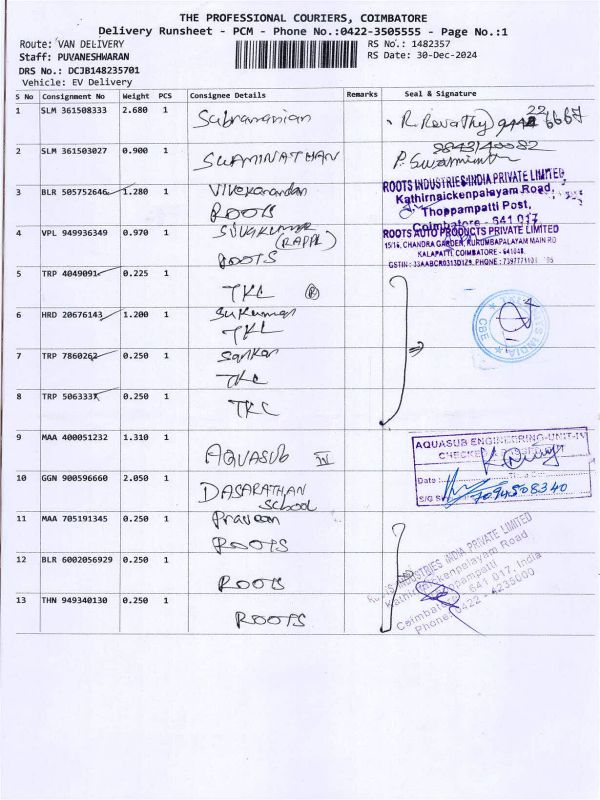 THE PROFESSIONAL COURIERS, COIMBATORE
Delivery Runsheet - PCM - Phone No.:0422-3505555 - Page No.:1
Route: VAN DELIVERY
RS No.: 1482357
Staff: PUVANESHWARAN
RS Date: 30-Dec-2024
DRS No.: DCJB148235701
Vehicle: EV Delivery
S No Consignment No Weight PCS Consignee Details Remarks Seal & Signature
1 SLM 361508333 2.680 1 Subramanian R. Revathy
2 SLM 361503027 0.900 1 SWAMINATHAN 9843140082
P. Swaminathan
3 BLR 505752646 1.280 1 Vivekanandan
ROOTS
ROOTS INDUSTRIES INDIA PRIVATE LIMITED
Kathirnaickenpalayam Road,
Thoppampatti Post,
Coimbatore - 641 017
4 VPL 949936349 0.970 1 Sivakumar
(RAPPL)
ROOTS
ROOTS AUTO PRODUCTS PRIVATE LIMITED
15/16, CHANDRA GARDEN, KURUMBAPALAYAM MAIN RD
KALAPATTI, COIMBATORE - 641048.
GSTIN: 33AABCR0313D1Z9, PHONE:
5 TRP 4049091 0.225 1 TKC R
6 HRD 20676143 1.200 1 Sukumar
TKC
INDIA
CBE
7 TRP 7860262 0.250 1 Sankar
TKC
8 TRP 5063337 0.250 1 TKC
9 MAA 400051232 1.310 1 AQUASUB IV
AQUASUB ENGINEERING-UNIT-IV
CHECKED
Date:
S/G Si 7094508340
10 GGN 900596660 2.050 1 DASARATHAN
School
11 MAA 705191345 0.250 1 Praveen
ROOTS
12 BLR 6002056929 0.250 1 ROOTS
ROOTS INDUSTRIES INDIA PRIVATE LIMITED
Kathirnaickenpalayam Road
Thoppampatti
Coimbatore - 641 017, India
Phone: 0422 - 4235000
13 THN 949340130 0.250 1 ROOTS